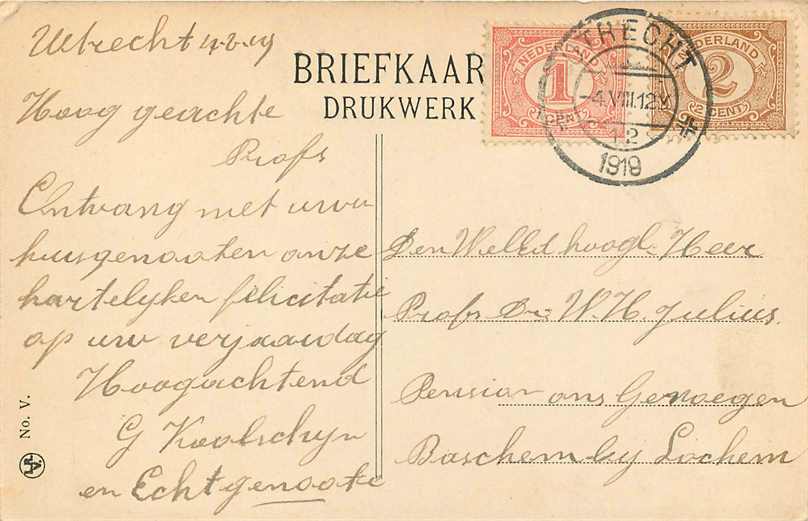 Utrecht 4-8-19
Hoog geachte
Profs
Ontvang met uwe
huisgenooten onze
hartelyken felicitatie
op uw verjaardag
Hoogachtend
G Koolschyn
en Echtgenoote
BRIEFKAAR
DRUKWERK
NEDERLAND
1
1 CENT
NEDERLAND
2
2 CENT
UTRECHT
-4.VIII.12V
1919
Den Weled hoogl. Heer
Profs Dr. W.H. Julius.
Pension ons Genoegen
Barchem by Lochem
No. V.